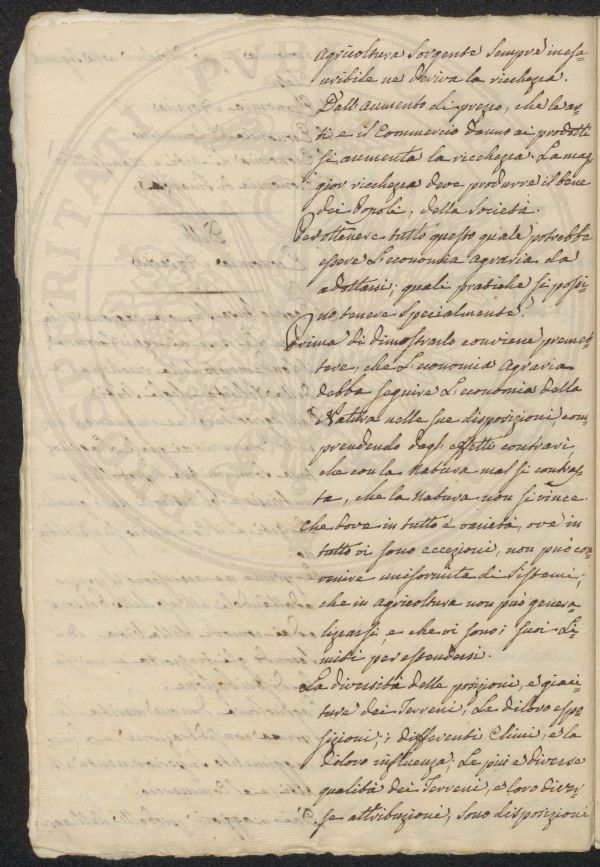 agricoltura sorgente sempre inesa=
uribile ne deriva la ricchezza.
Dall'aumento di prezzo, che le ar=
ti e il Commercio danno ai prodotti
si aumenta la ricchezza. La mag=
gior ricchezza deve produrre il bene
dei Popoli, della Società.
Per ottenere tutto questo quale potrebbe
essere L'economia agraria da
adottarsi; quali pratiche si possi=
no tenere specialmente.
Prima di dimostrarlo conviene premet=
tere, che L'economia Agraria
debba seguire L'economia della
Natura nelle sue disposizioni, com=
prendendo dagl'effetti contrari,
che con la Natura mal si contras=
ta, che la Natura non si vince.
Che dove in tutto è varietà, ove in
tutto vi sono eccezioni, non può con=
venire uniformità di Sistemi;
che in agricoltura non può genera=
lizzarsi, e che vi sono i suoi Li=
miti per estendersi.
La diversità delle posizioni, e giaci=
ture dei Terreni, Le diloro espo=
sizioni; i differenti Climi, e la
diloro influenza; Le più e diverse
qualità dei Terreni, e loro diver=
se attribuzioni, sono disposizioni